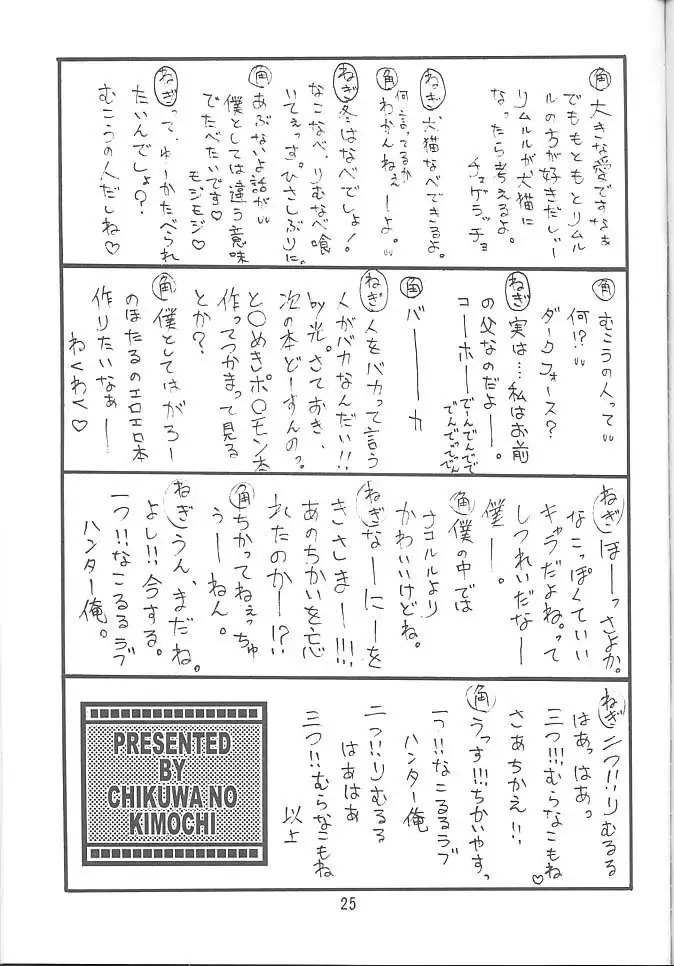 角 大きな愛ですなぁ
でももともとリムル
ルの方が好きだしぃー
リムルルが犬猫に
なったら考えるよ。
チェゲラッチョ
ねぎ 犬猫なべできるよ。
角 何言ってるか
わかんねぇーよ。
ねぎ 冬はなべでしょ!
なこなべ、りむなべ喰
いてぇっす。ひさしぶりに。
角 あぶないよ話が
僕としては違う意味
でたべたいです♡
モジモジ♡
ねぎ って、ゆーかたべられ
たいんでしょ?
むこうの人だしね♡
角 むこうの人って
何!?
ダークフォース?
ねぎ 実は…私はお前
の父なのだよー。
コーホー でーんでんでんで
でんでってでん
角 バーーーカ
ねぎ 人をバカって言う
人がバカなんだい!!
by光。さておき、
次の本どーすんの?
と〇めきポ〇モン本
作ってつかまって見る
とか?
角 僕としてはがろー
のほたるのエロエロ本
作りたいなぁー
わくわく♡
ねぎ ほーっさよか。
なこっぽくていい
キャラだよね。って
しつれいだなー
僕ー。
角 僕の中では
ナコルルより
かわいいけどね。
ねぎ なーにーを
きさしまー!!!
あのちかいを忘
れたのかー!?
角 ちかってねぇっちゅ
うーねん。
ねぎ うん、まだね。
よし!!今する。
一つ!!なこるるラブ
ハンター俺。
ねぎ 二つ!!りむるる
はあっはぁっ
三つ!!!むらなこもね♡
さあちかえ!!
角 うっす!!!ちかいやすっ
一つ!!なこるるラブ
ハンター俺
二つ!!りむるる
はあはあ
三つ!!むらなこもね
以上
PRESENTED
BY
CHIKUWA NO
KIMOCHI
25